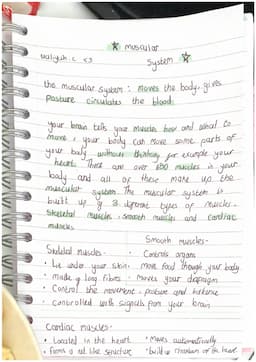 ☆ muscular
waliyah.c <3 System ☆
the muscular system : moves the body, gives
posture circulates the blood.
your brain tells your muscles how and what to
move, your body can move some parts of
your body without thinking for example your
heart. There are over 600 muscles in your
body and all of these make up the
muscular system. The muscular system is
built up of 3 different types of muscles.
Skeletal muscles, smooth muscles and cardiac
muscles
Skeletal muscles-
• Lie under your skin.
• made of long fibres
• Control the movement, posture and balance
• Controlled with signals from your brain
Smooth muscles-
• Controls organs
move food through your body
• moves your diaphragm
Cardiac muscles-
• Located in the heart
• Forms a net like structure
• Moves automatically
• build up chambers of the heart